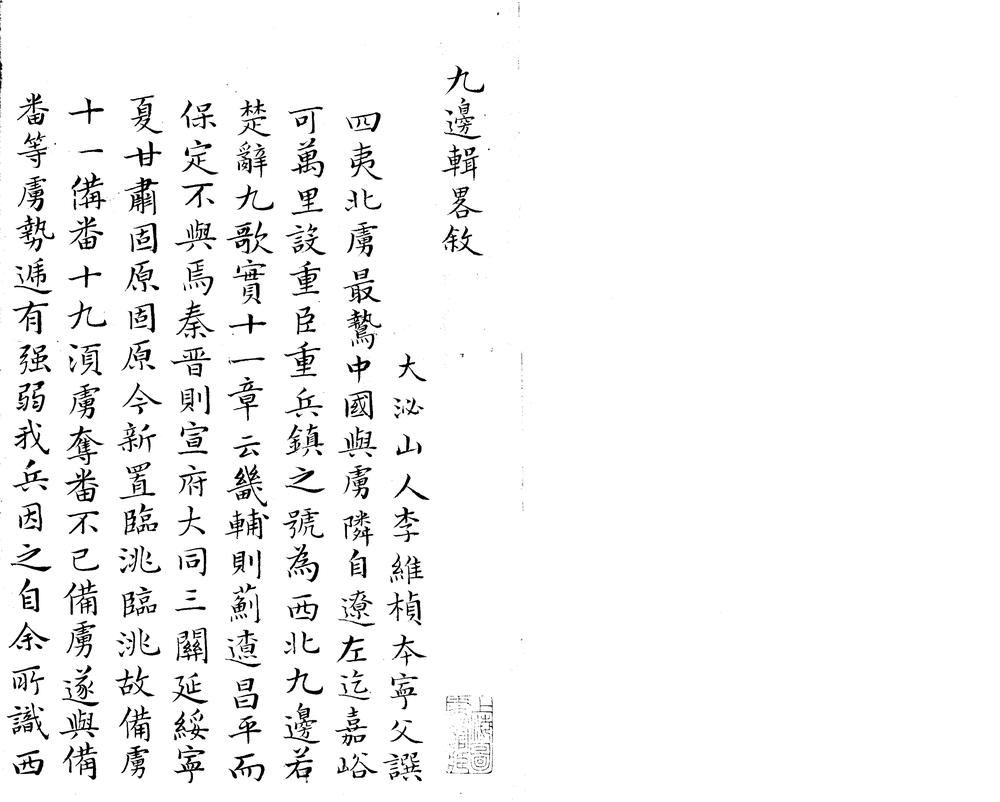 九邊輯畧敘
大泌山人李維楨本寧父譔
四夷北虜最驁中國與虜隣自遼左迄嘉峪
可萬里設重臣重兵鎮之號為西北九邊若
楚辭九歌實十一章云畿輔則薊遼昌平而
保定不與焉秦晋則宣府大同三關延綏寧
夏甘肅固原固原今新置臨洮臨洮故備虜
十一備番十九湏虜奪番不已備虜遂與備
番等虜勢遞有强弱我兵因之自余所識西